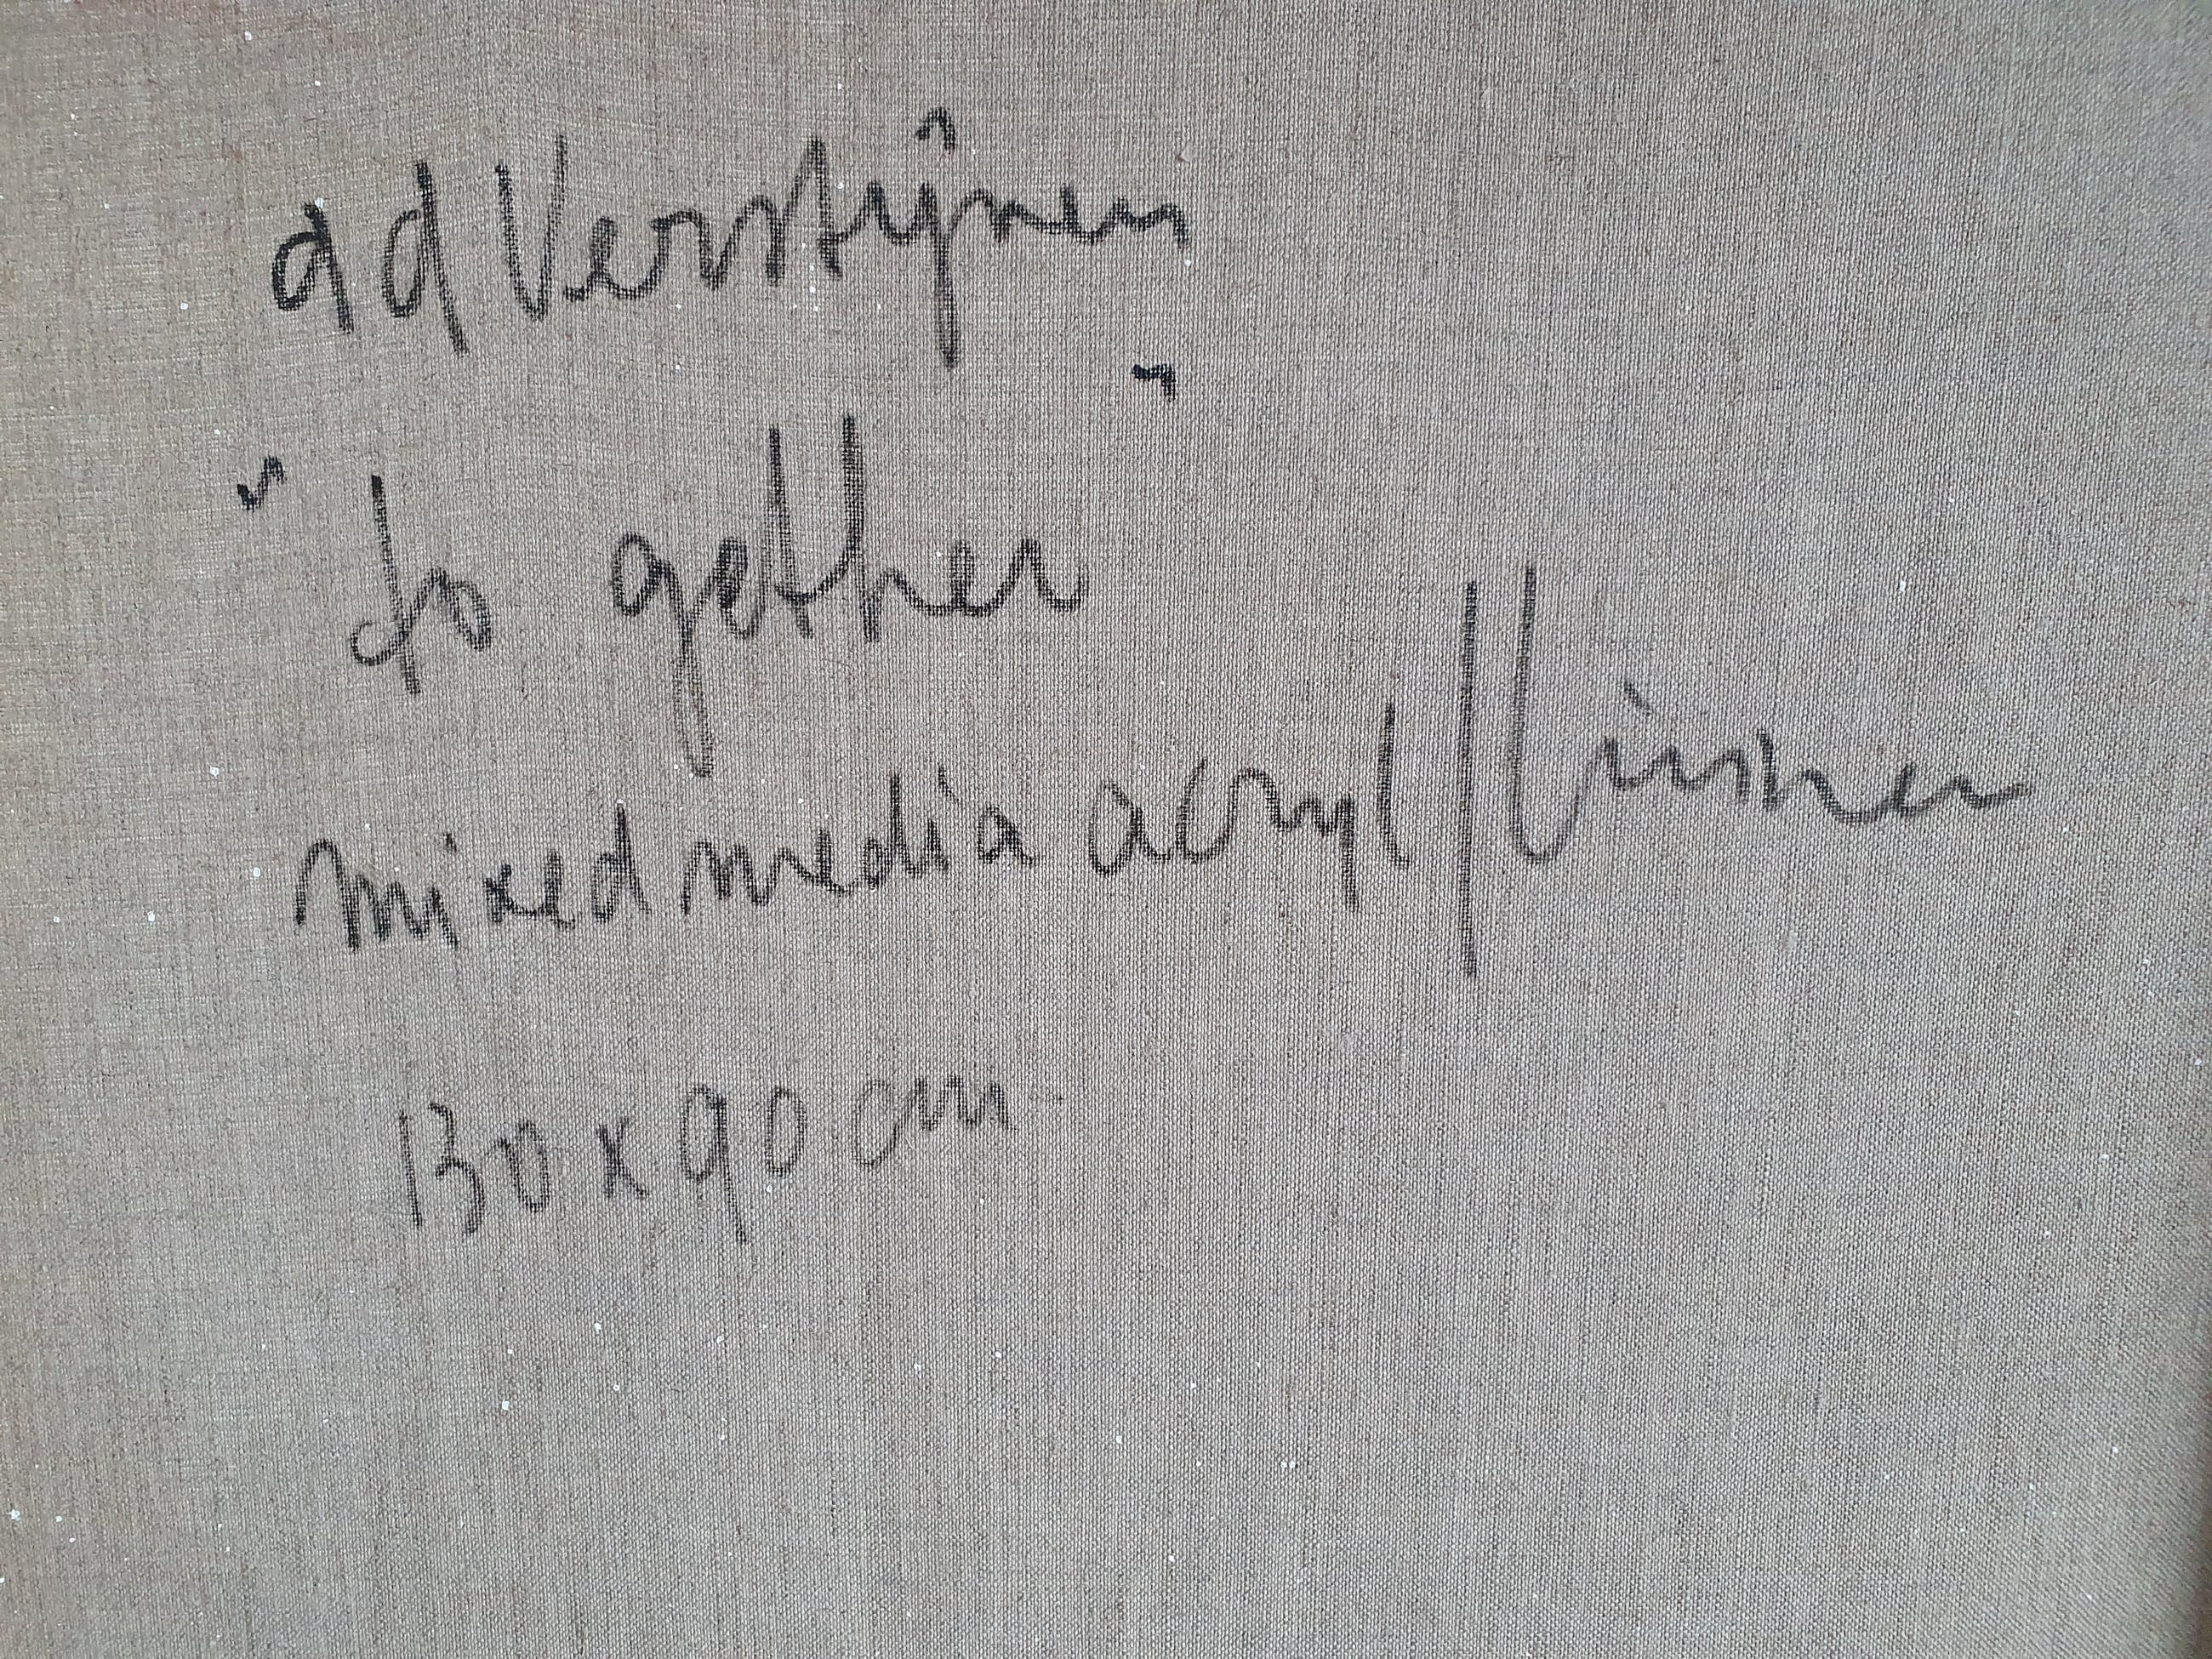 ad Verstijnen
"to gether"
mixed media acryl / linnen
130 x 90 cm